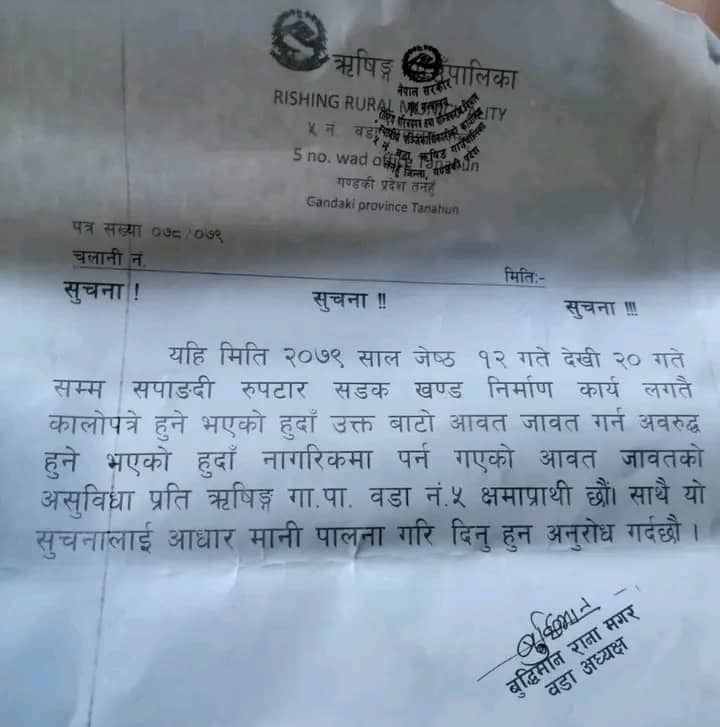 ऋषिङ्ग
पालिका
RISHING RURAL
५ नं. वडा
नेपाल सरकार
5 no. wad office Tanahun
गण्डकी प्रदेश तनहुँ
Gandaki province Tanahun
पत्र सख्या ०७८/०७९
चलानी नं.
मिति:-
सुचना ! सुचना !! सुचना !!!
यहि मिति २०७९ साल जेष्ठ १२ गते देखी २० गते
सम्म सपाङदी रुपटार सडक खण्ड निर्माण कार्य लगतै
कालोपत्रे हुने भएको हुदाँ उक्त बाटो आवत जावत गर्न अवरुद्ध
हुने भएको हुदाँ नागरिकमा पर्न गएको आवत जावतको
असुविधा प्रति ऋषिङ्ग गा.पा. वडा नं.५ क्षमाप्राथी छौं। साथै यो
सुचनालाई आधार मानी पालना गरि दिनु हुन अनुरोध गर्दछौ ।
बुद्धिमान
बुद्धिमान राना मगर
वडा अध्यक्ष